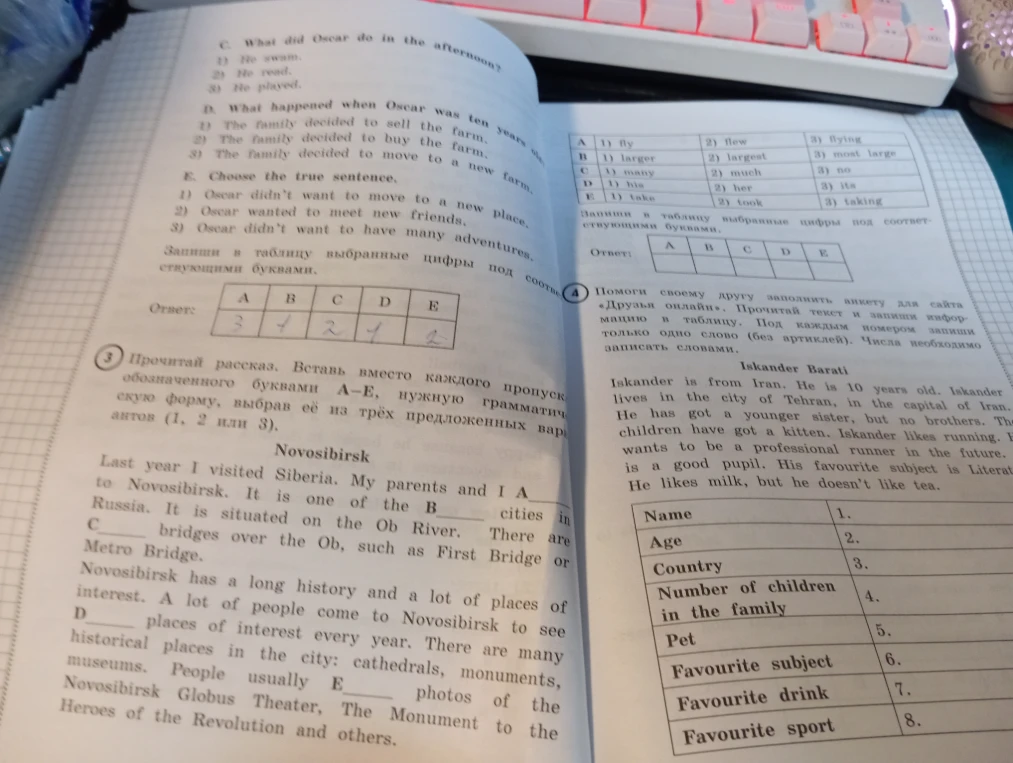 C. What did Oscar do in the afternoon?
1) He swam.
2) He read.
3) He played.
D. What happened when Oscar was ten years
1) The family decided to sell the farm.
2) The family decided to buy the farm.
3) The family decided to move to a new farm.
E. Choose the true sentence.
1) Oscar didn't want to move to a new place.
2) Oscar wanted to meet new friends.
3) Oscar didn't want to have many adventures.
Запиши в таблицу выбранные цифры под соотве
ствующими буквами.
Ответ:
A B C D E
3 1 2 1 2
3 Прочитай рассказ. Вставь вместо каждого пропуск
обозначенного буквами A–E, нужную грамматич
скую форму, выбрав её из трёх предложенных вар
антов (1, 2 или 3).
Novosibirsk
Last year I visited Siberia. My parents and I A____
to Novosibirsk. It is one of the B____ cities in
Russia. It is situated on the Ob River. There are
C____ bridges over the Ob, such as First Bridge or
Metro Bridge.
Novosibirsk has a long history and a lot of places of
interest. A lot of people come to Novosibirsk to see
D____ places of interest every year. There are many
historical places in the city: cathedrals, monuments,
museums. People usually E____ photos of the
Novosibirsk Globus Theater, The Monument to the
Heroes of the Revolution and others.
A 1) fly 2) flew 3) flying
B 1) larger 2) largest 3) most large
C 1) many 2) much 3) no
D 1) his 2) her 3) its
E 1) take 2) took 3) taking
Запиши в таблицу выбранные цифры под соответ-
ствующими буквами.
Ответ:
A B C D E
4 Помоги своему другу заполнить анкету для сайта
«Друзья онлайн». Прочитай текст и запиши инфор-
мацию в таблицу. Под каждым номером запиши
только одно слово (без артиклей). Числа необходимо
записать словами.
Iskander Barati
Iskander is from Iran. He is 10 years old. Iskander
lives in the city of Tehran, in the capital of Iran.
He has got a younger sister, but no brothers. The
children have got a kitten. Iskander likes running. H
wants to be a professional runner in the future.
is a good pupil. His favourite subject is Literat
He likes milk, but he doesn't like tea.
Name 1.
Age 2.
Country 3.
Number of children
in the family 4.
Pet 5.
Favourite subject 6.
Favourite drink 7.
Favourite sport 8.